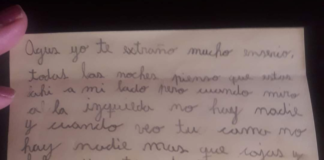 Agus yo te extraño mucho
todas las noches pienso que estas
ahi a mi lado pero cuando miro
a la izquierda no hay nadie
y cuando veo tu cama no
hay nadie mas que cajas y